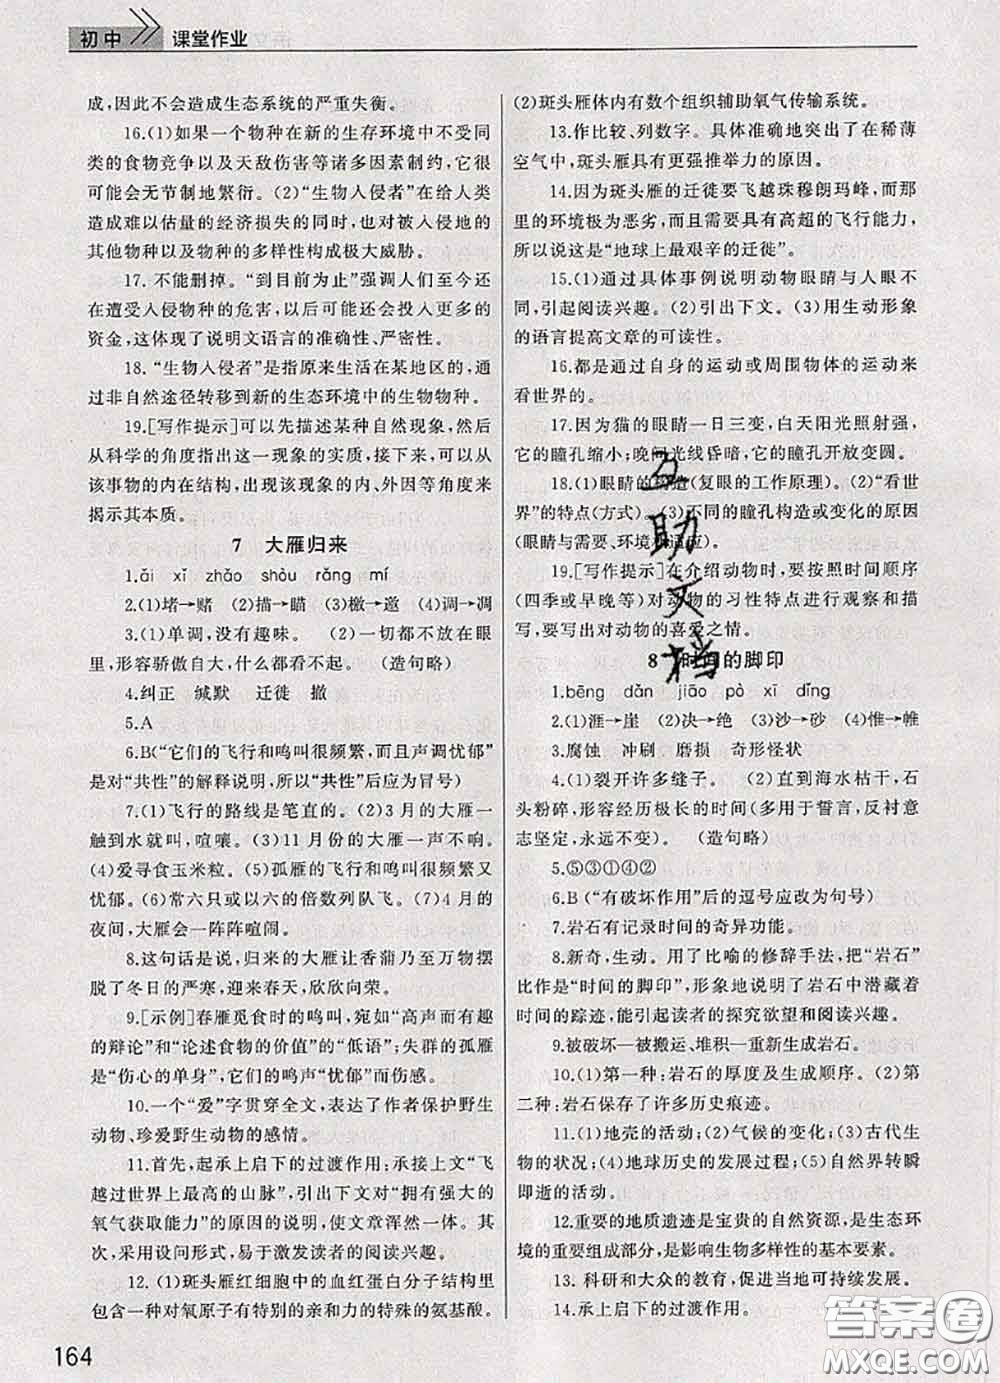 初中 课堂作业
成，因此不会造成生态系统的严重失衡。
16.(1)如果一个物种在新的生存环境中不受同
类的食物竞争以及天敌伤害等诸多因素制约，它很
可能会无节制地繁衍。(2)“生物入侵者”在给人类
造成难以估量的经济损失的同时，也对被入侵地的
其他物种以及物种的多样性构成极大威胁。
17. 不能删掉。“到目前为止”强调人们至今还
在遭受入侵物种的危害，以后可能还要投入更多的
资金，这体现了说明文语言的准确性、严密性。
18. “生物入侵者”是指原来生活在某地区的，通
过非自然途径转移到新的生态环境中的生物物种。
19.[写作提示]可以先描述某种自然现象，然后
从科学的角度指出这一现象的实质，接下来可以从
该事物的内在结构，出现该现象的内、外因等角度来
揭示其本质。
7 大雁归来
1.ǎi xǐ zhǎo shòu rǎng mí
2.(1)堵→赌 (2)描→瞄 (3)檄→邀 (4)调→凋
3.(1)单调，没有趣味。 (2)一切都不放在眼
里，形容骄傲自大，什么都看不起。 (造句略)
4.纠正 缄默 迁徙 撤
5.A
6.B(“它们的飞行和鸣叫很频繁，而且声调忧郁”
是对“共性”的解释说明，所以“共性”后应为冒号)
7.(1)飞行的路线是笔直的。(2)3月的大雁一
触到水就叫，喧嚷。(3)11月份的大雁一声不响。
(4)爱寻食玉米粒。(5)孤雁的飞行和鸣叫很频繁又
忧郁。(6)常六只或以六的倍数列队飞。(7)4月的
夜间，大雁会一阵阵喧闹。
8.这句话是说，归来的大雁让香蒲乃至万物摆
脱了冬日的严寒，迎来春天，欣欣向荣。
9.[示例]春雁觅食时的鸣叫，宛如“高声而有趣
的辩论”和“论述食物的价值”的“低语”；失群的孤雁
是“伤心的单身”，它们的鸣声“忧郁”而伤感。
10.一个“爱”字贯穿全文，表达了作者保护野生
动物、珍爱野生动物的感情。
11.首先，起承上启下的过渡作用；承接上文“飞
越过世界上最高的山脉”，引出下文对“拥有强大的
氧气获取能力”的原因的说明，使文章浑然一体。其
次，采用设问形式，易于激发读者的阅读兴趣。
12. (1)斑头雁红细胞中的血红蛋白分子结构里
包含一种对氧原子有特别的亲和力的特殊的氨基酸。
164
(2)斑头雁体内有数个组织辅助氧气传输系统。
13.作比较、列数字。具体准确地突出了在稀薄
空气中，斑头雁具有更强推举力的原因。
14.因为斑头雁的迁徙要飞越珠穆朗玛峰，而那
里的环境极为恶劣，而且需要具有高超的飞行能力，
所以说这是“地球上最艰辛的迁徙”。
15.(1)通过具体事例说明动物眼睛与人眼不
同，引起阅读兴趣。(2)引出下文。(3)用生动形象
的语言提高文章的可读性。
16.都是通过自身的运动或周围物体的运动来
看世界的。
17.因为猫的眼睛一日三变，白天阳光照射强，
它的瞳孔缩小；晚间光线昏暗，它的瞳孔开放变圆。
18.(1)眼睛的构造(复眼的工作原理)。(2)“看世
界”的特点(方式)。(3)不同的瞳孔构造或变化的原因
(眼睛与需要、环境相适应)。
19.[写作提示]在介绍动物时，要按照时间顺序
(四季或早晚等)对动物的习性特点进行观察和描
写，要写出对动物的喜爱之情。
互助文档
8 时间的脚印
1.bēng dǎn jiāo pò xī dǐng
2.(1)涯→崖 (2)决→绝 (3)沙→砂 (4)惟→帷
3.腐蚀 冲刷 磨损 奇形怪状
4.(1)裂开许多缝子。 (2)直到海水枯干，石
头粉碎，形容经历极长的时间(多用于誓言，反衬意
志坚定，永远不变)。 (造句略)
5.⑤③①④②
6.B(“有破坏作用”后的逗号应改为句号)
7.岩石有记录时间的奇异功能。
8.新奇，生动。用了比喻的修辞手法，把“岩石”
比作是“时间的脚印”，形象地说明了岩石中潜藏着
时间的踪迹，能引起读者的探究欲望和阅读兴趣。
9.被破坏—被搬运、堆积—重新生成岩石。
10.(1)第一种：岩石的厚度及生成顺序。(2)第
二种：岩石保存了许多历史痕迹。
11.(1)地壳的活动；(2)气候的变化；(3)古代生
物的状况；(4)地球历史的发展过程；(5)自然界转瞬
即逝的活动。
12.重要的地质遗迹是宝贵的自然资源，是生态环
境的重要组成部分，是影响生物多样性的基本要素。
13. 科研和大众的教育，促进当地可持续发展。
14.承上启下的过渡作用。
答案圈
MXQE.COM